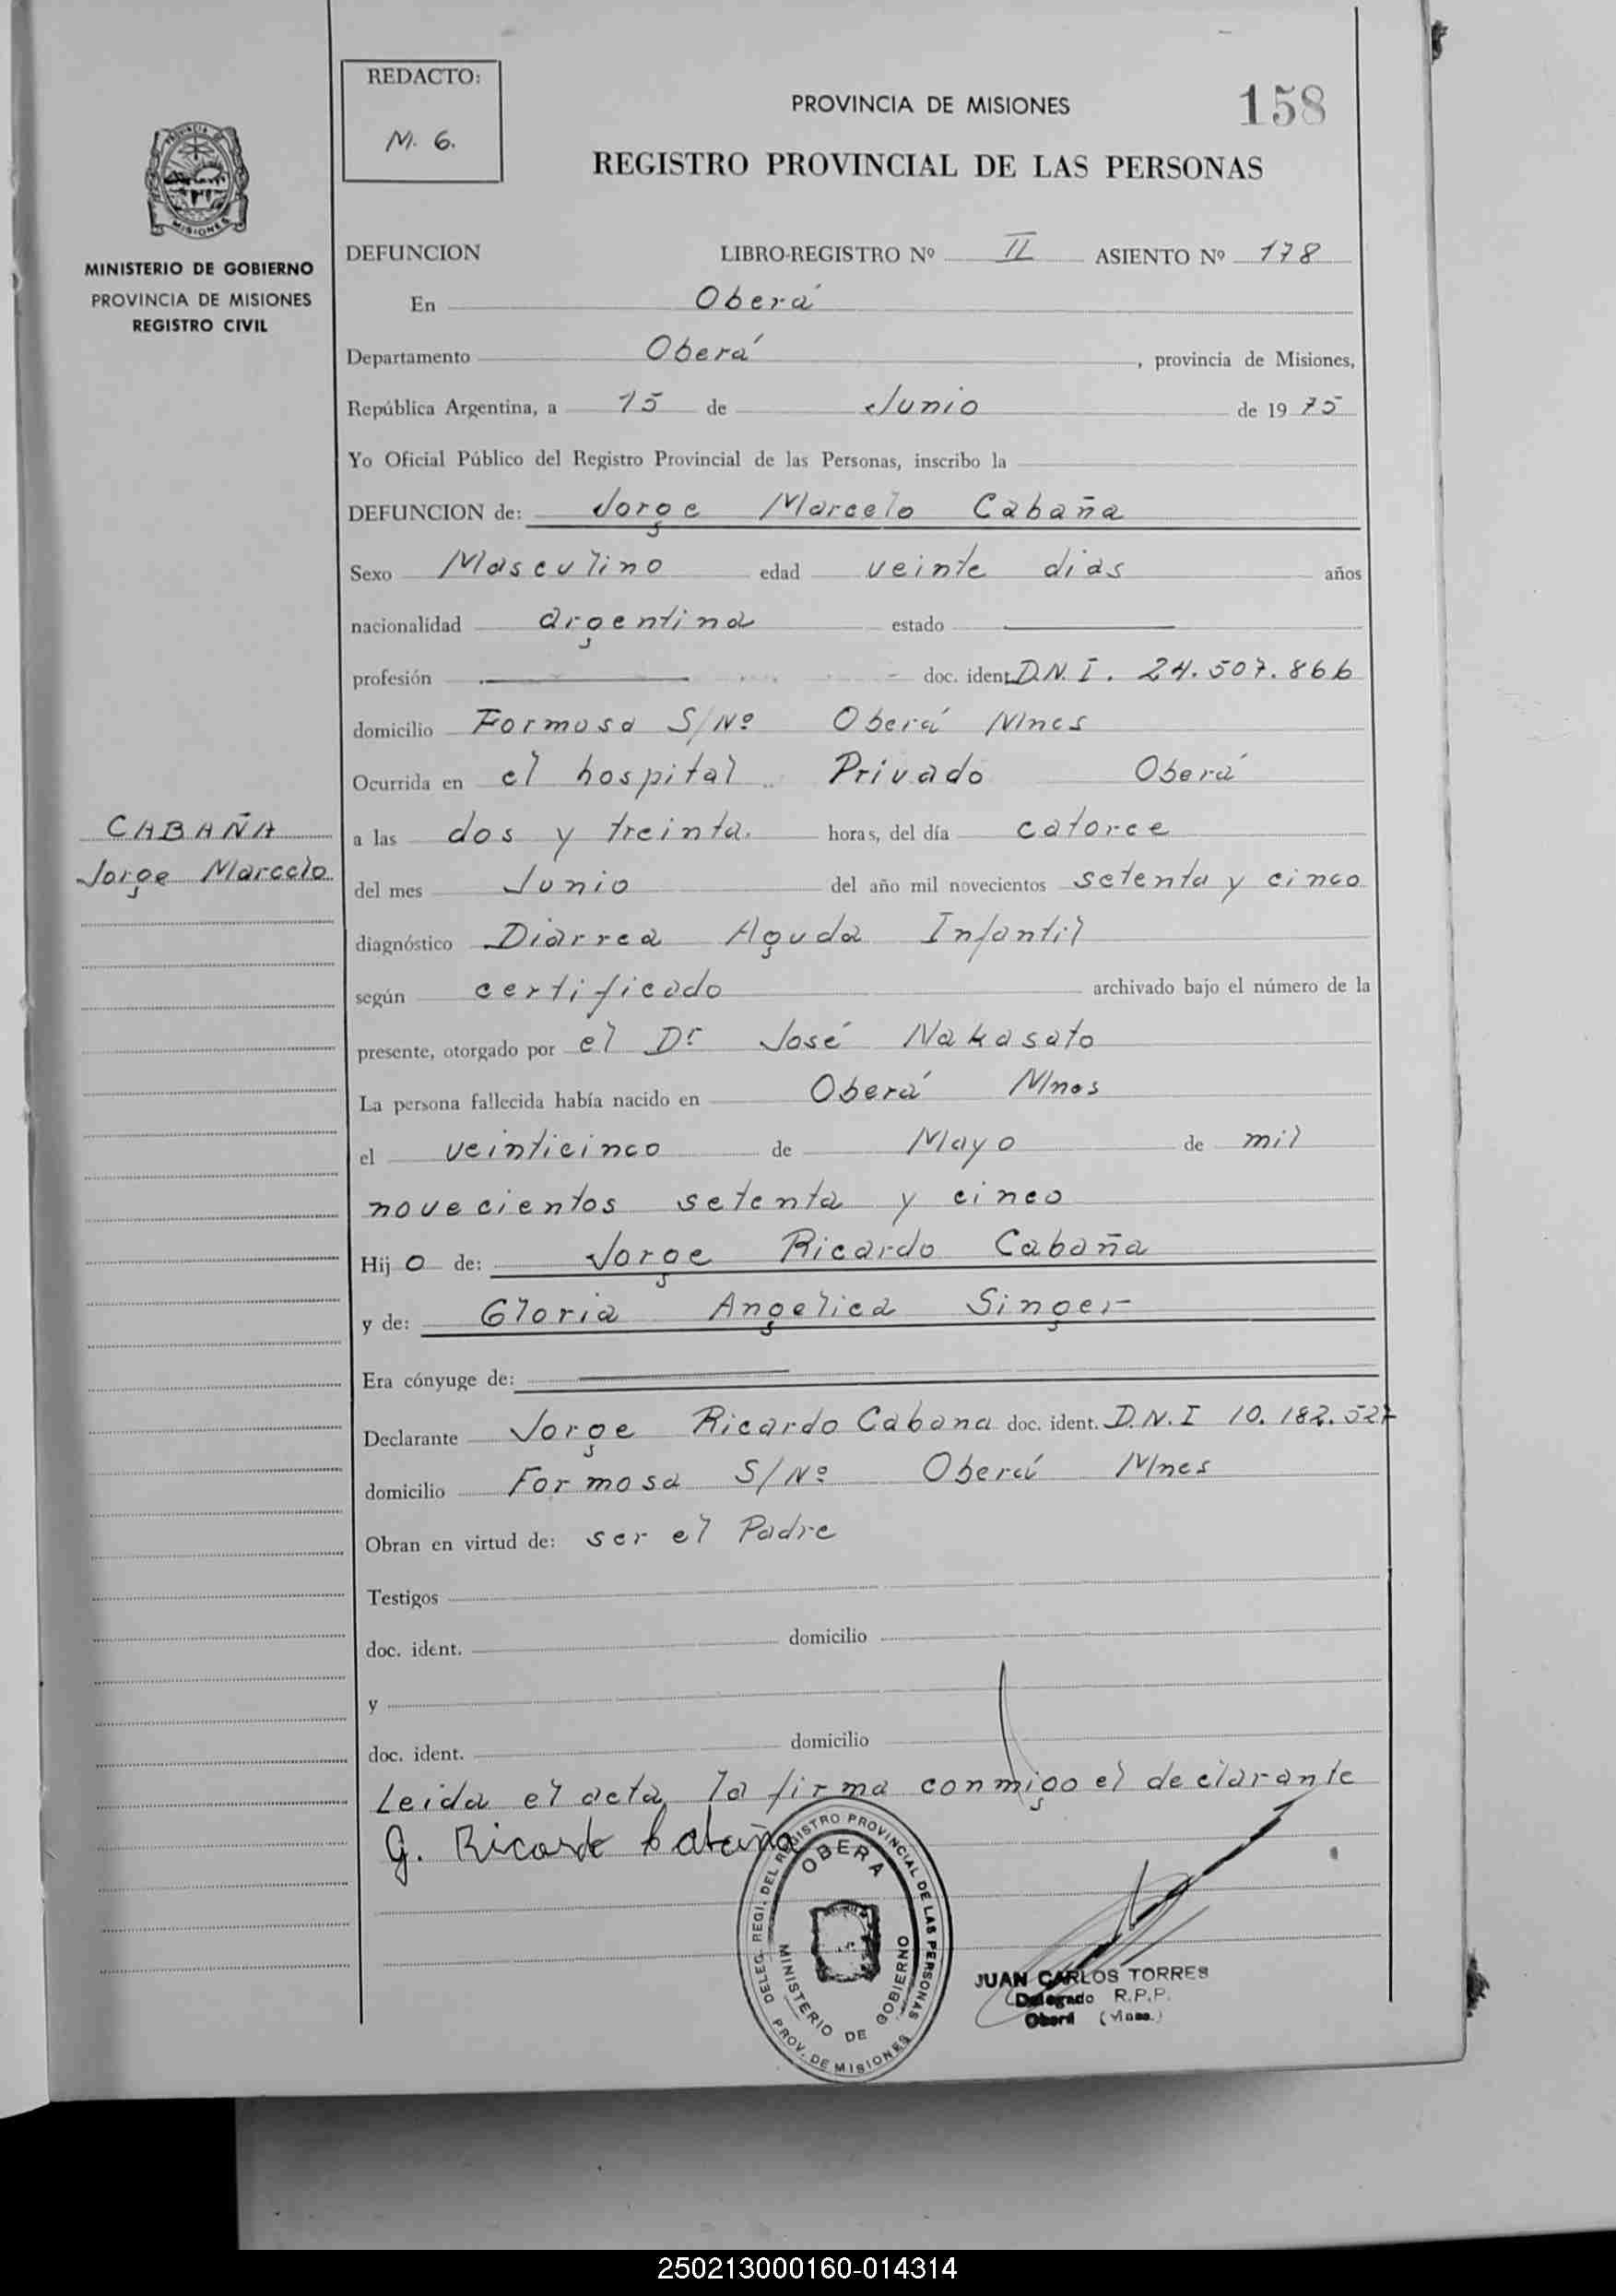 REDACTO:
M. G.
PROVINCIA DE MISIONES
158
REGISTRO PROVINCIAL DE LAS PERSONAS
MISIONES
MINISTERIO DE GOBIERNO
PROVINCIA DE MISIONES
REGISTRO CIVIL
DEFUNCION LIBRO-REGISTRO Nº II ASIENTO Nº 178
En Oberá
Departamento Oberá, provincia de Misiones,
República Argentina, a 15 de Junio de 1975
Yo Oficial Público del Registro Provincial de las Personas, inscribo la
DEFUNCION de: Jorge Marcelo Cabaña
Sexo Masculino edad veinte dias años
nacionalidad argentina estado
profesión doc. ident. D.N.I. 24.507.866
domicilio Formosa S/Nº Oberá Mnes
Ocurrida en el hospital Privado Oberá
CABAÑA
Jorge Marcelo
a las dos y treinta. horas, del día catorce
del mes Junio del año mil novecientos setenta y cinco
diagnóstico Diarrea Aguda Infantil
según certificado archivado bajo el número de la
presente, otorgado por el Dr José Nakasato
La persona fallecida había nacido en Oberá Mnes
el veinticinco de Mayo de mil
novecientos setenta y cinco
Hijo de: Jorge Ricardo Cabaña
y de: Gloria Angelica Singer
Era cónyuge de:
Declarante Jorge Ricardo Cabana doc. ident. D.N.I 10.182.527
domicilio Formosa S/Nº Oberá Mnes
Obran en virtud de: ser el Padre
Testigos
doc. ident. domicilio
y
doc. ident. domicilio
Leida el acta, la firma conmigo el declarante
G. Ricardo Cabaña
DELEG. REGI. DEL REGISTRO PROVINCIAL DE LAS PERSONAS
OBERA
MINISTERIO DE GOBIERNO
PROV. DE MISIONES
JUAN CARLOS TORRES
Delegado R.P.P.
Oberá (Mnes.)
250213000160-014314